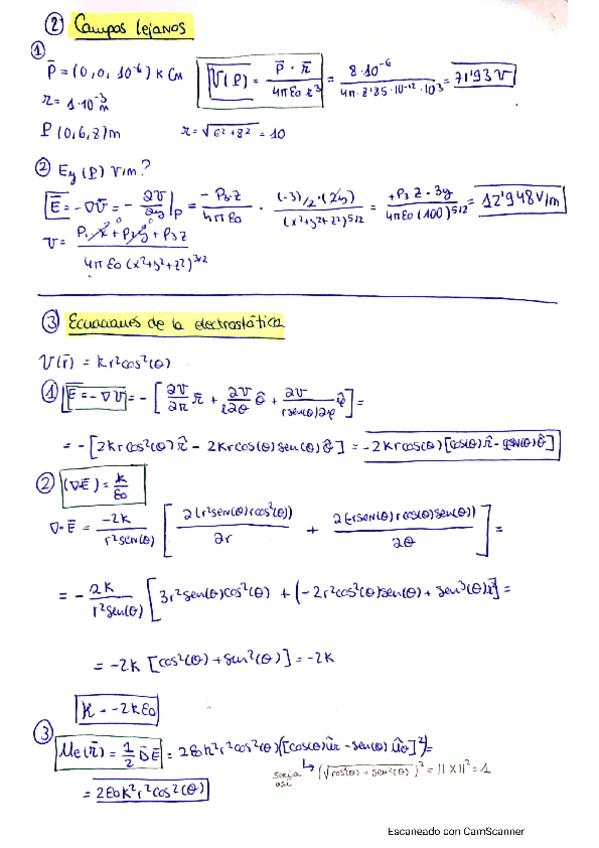 ② Campos lejanos
①
P̄ = (0, 0, 10⁻⁶) k Cm
V(P) = P̄ · r̄ / 4πε₀ r³ = 8·10⁻⁶ / 4π·8'85·10⁻¹²·10³ = 71'93 V
r = 1·10⁻³ m
P (0,6,8) m
r = √(6²+8²) = 10
② Ey (P) V/m?
Ē = -∇V̄ = - ∂V/∂y |P = - P₃·z / 4πε₀ · (-3)/2 · (2y) / (x²+y²+z²)^5/2 = + P₃ z · 3y / 4πε₀ (100)^5/2 = 12'948 V/m
V = P₁x + P₂y + P₃z / 4πε₀ (x²+y²+z²)^3/2
③ Ecuaciones de la electrostática
V(r̄) = kr²cos²(θ)
① Ē = -∇V = - [ ∂V/∂r r̂ + ∂V/r∂θ θ̂ + ∂V/rsen(θ)∂φ φ̂ ] =
= - [2krcos²(θ) r̂ - 2krcos(θ)sen(θ) θ̂] = -2krcos(θ) [cos(θ) r̂ - sen(θ) θ̂]
② (∇Ē) = k/ε₀
∇·Ē = -2k / r²sen(θ) [ ∂(r²sen(θ)rcos²(θ)) / ∂r + ∂(-rsen(θ)rcos(θ)sen(θ)) / ∂θ ] =
= - 2k / r²sen(θ) [3r²sen(θ)cos²(θ) + (-2r²cos²(θ)sen(θ) + sen³(θ)r²] =
= -2k [cos²(θ) + sen²(θ)] = -2k
K = -2kε₀
③
Ue(r̄) = 1/2 D̄Ē = 2ε₀k²r²cos²(θ)([cosθ ûr - sen(θ) ûθ]²) =
seria asi ↳ (√cos²(θ) + sen²(θ))² = ||X||² = 1
= 2ε₀k²r²cos²(θ)
Escaneado con CamScanner